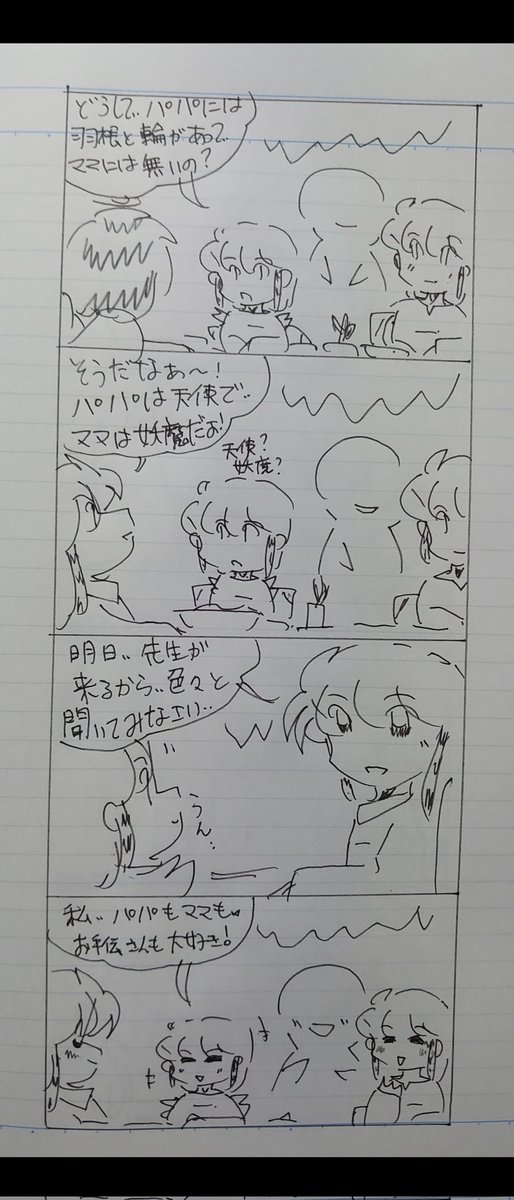 どうして、パパには
羽根と輪があって、
ママには無いの？
そうだなぁ〜！
パパは天使で、
ママは妖魔だよ！
天使？
妖魔？
明日、先生が
来るから、色々と
聞いてみなさい、
うん、
私、パパもママも
お手伝さんも大好き！